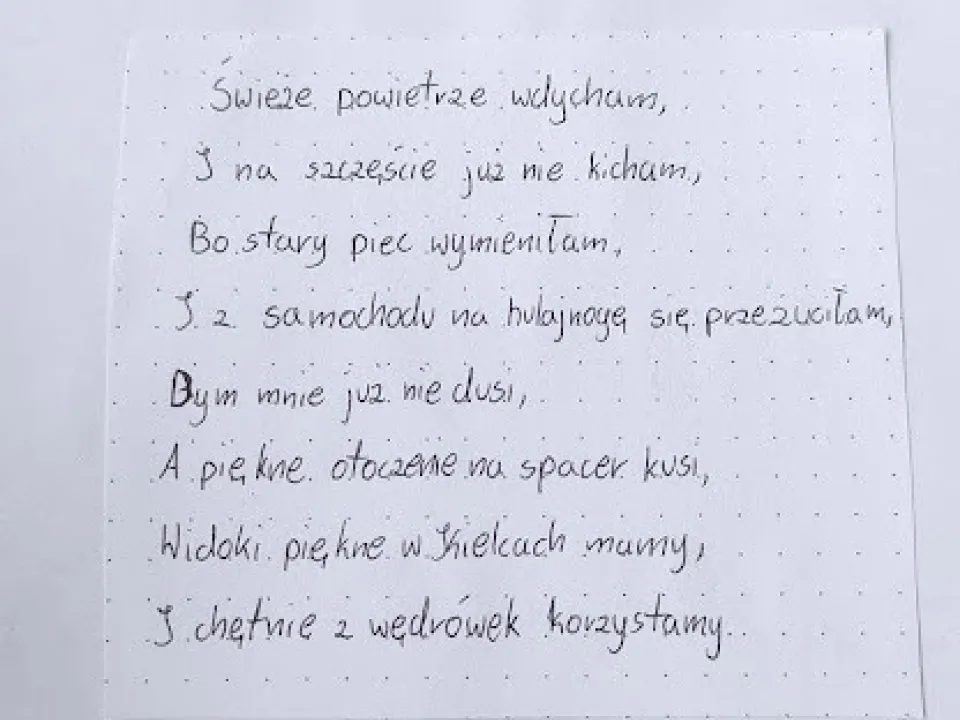 Świeże powietrze wdycham,
I na szczęście już nie kicham,
Bo stary piec wymieniłam,
I z samochodu na hulajnogę się przezuciłam,
Dym mnie już nie dusi,
A piękne otoczenie na spacer kusi,
Widoki piękne w Kielcach mamy,
I chętnie z wędrówek korzystamy.